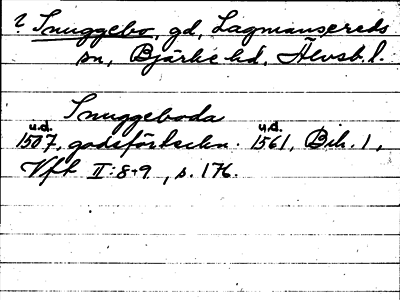 ? Snuggebo, gd, Lagmansereds
sn, Bjärke hd, Älvsb. l.
Snuggeboda
u.d. u.d.
1507, godsförteckn. 1561, Bih. 1,
Vft II:8-9, s. 176.